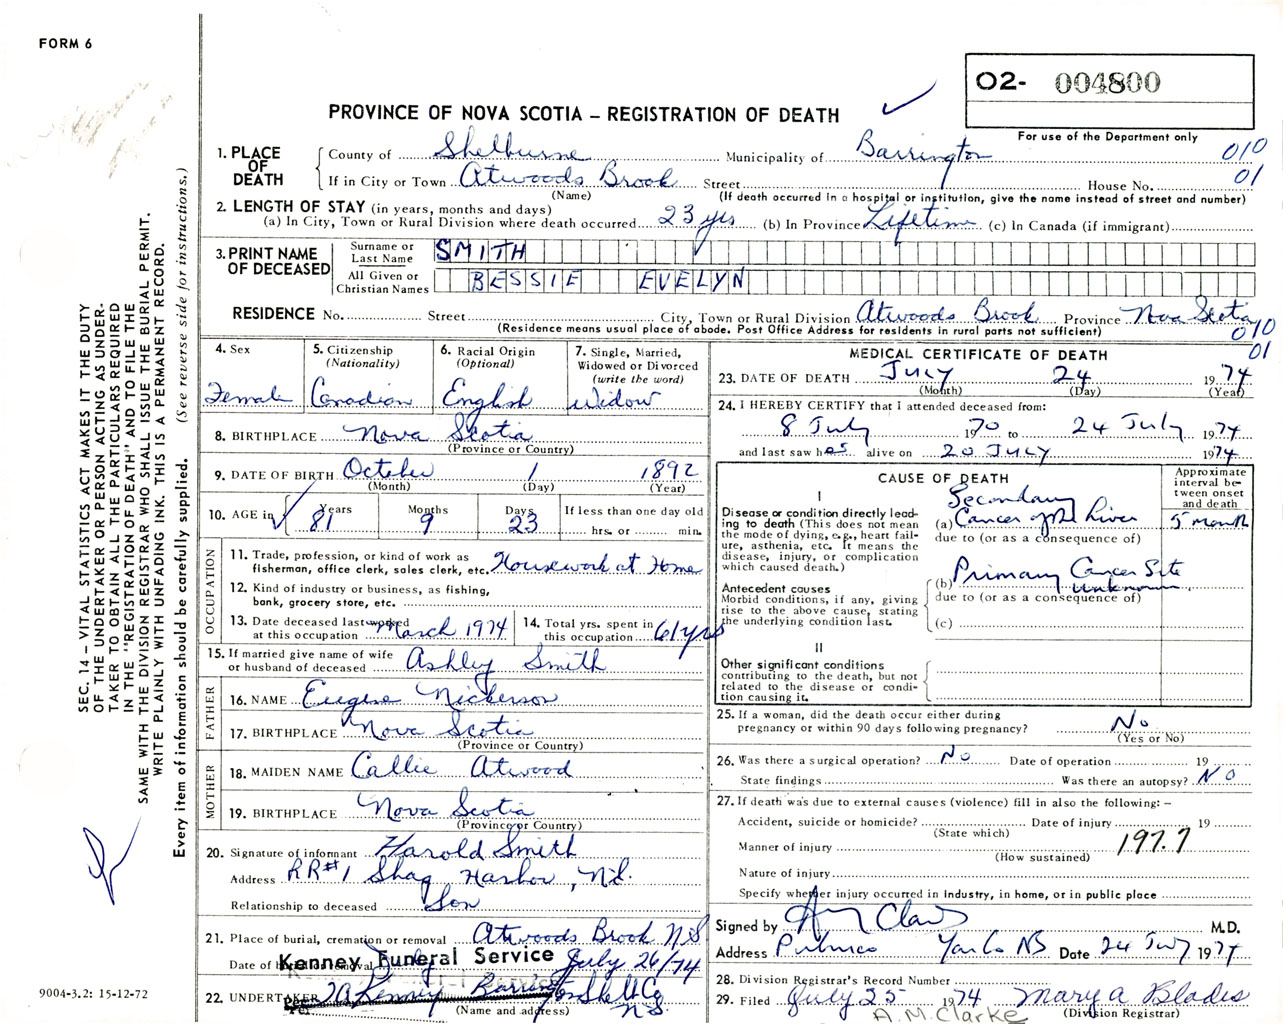 FORM 6
02- 004800
For use of the Department only
PROVINCE OF NOVA SCOTIA – REGISTRATION OF DEATH
1. PLACE OF DEATH
County of Shelburne Municipality of Barrington 010
If in City or Town Atwoods Brook Street House No. 01
(Name) (If death occurred in a hospital or institution, give the name instead of street and number)
2. LENGTH OF STAY (in years, months and days)
(a) In City, Town or Rural Division where death occurred 23 yrs (b) In Province Lifetime (c) In Canada (if immigrant)
3. PRINT NAME OF DECEASED
Surname or Last Name SMITH
All Given or Christian Names BESSIE EVELYN
RESIDENCE No. Street City, Town or Rural Division Atwoods Brook Province Nova Scotia
(Residence means usual place of abode. Post Office Address for residents in rural parts not sufficient) 010
01
4. Sex
Female
5. Citizenship
(Nationality)
Canadian
6. Racial Origin
(Optional)
English
7. Single, Married, Widowed or Divorced
(write the word)
Widow
8. BIRTHPLACE Nova Scotia
(Province or Country)
9. DATE OF BIRTH October 1 1892
(Month) (Day) (Year)
10. AGE in Years 81 Months 9 Days 23 If less than one day old
hrs. or min.
OCCUPATION
11. Trade, profession, or kind of work as
fisherman, office clerk, sales clerk, etc. Housework at Home
12. Kind of industry or business, as fishing,
bank, grocery store, etc.
13. Date deceased last worked
at this occupation March 1974
14. Total yrs. spent in
this occupation 61 yrs
15. If married give name of wife
or husband of deceased Ashley Smith
FATHER
16. NAME Eugene Nickerson
17. BIRTHPLACE Nova Scotia
(Province or Country)
MOTHER
18. MAIDEN NAME Callie Atwood
19. BIRTHPLACE Nova Scotia
(Province or Country)
20. Signature of informant Harold Smith
Address RR#1 Shag Harbor, N.S.
Relationship to deceased Son
21. Place of burial, cremation or removal Atwoods Brook N.S
Date of burial or removal July 26/74
Kenney Funeral Service
22. UNDERTAKER Kenney Barrington Shel Co N.S.
(Name and address)
MEDICAL CERTIFICATE OF DEATH
23. DATE OF DEATH July 24 1974
(Month) (Day) (Year)
24. I HEREBY CERTIFY that I attended deceased from:
8 July 1970 to 24 July 1974
and last saw her alive on 20 July 1974
CAUSE OF DEATH
Approximate interval between onset and death
I
Disease or condition directly leading to death (This does not mean the mode of dying, e.g., heart failure, asthenia, etc. It means the disease, injury, or complication which caused death.)
Secondary
(a) Cancer of the Liver 5 month
due to (or as a consequence of)
Antecedent causes
Morbid conditions, if any, giving rise to the above cause, stating the underlying condition last.
(b) Primary Cancer Site unknown.
due to (or as a consequence of)
(c)
II
Other significant conditions contributing to the death, but not related to the disease or condition causing it.
25. If a woman, did the death occur either during
pregnancy or within 90 days following pregnancy? No
(Yes or No)
26. Was there a surgical operation? No Date of operation 19
State findings Was there an autopsy? No
27. If death was due to external causes (violence) fill in also the following: –
Accident, suicide or homicide? Date of injury 19
(State which)
Manner of injury 197.7
(How sustained)
Nature of injury
Specify whether injury occurred in industry, in home, or in public place
Signed by M.D.
Address Pubnico Yar Co NS Date 24 July 1974
28. Division Registrar's Record Number
29. Filed July 25 1974 Mary A Blades
(Division Registrar)
A.M. Clarke
SEC. 14 – VITAL STATISTICS ACT MAKES IT THE DUTY
OF THE UNDERTAKER OR PERSON ACTING AS UNDER-
TAKER TO OBTAIN ALL THE PARTICULARS REQUIRED
IN THE "REGISTRATION OF DEATH" AND TO FILE THE
SAME WITH THE DIVISION REGISTRAR WHO SHALL ISSUE THE BURIAL PERMIT.
WRITE PLAINLY WITH UNFADING INK. THIS IS A PERMANENT RECORD.
Every item of information should be carefully supplied. (See reverse side for instructions.)
9004-3.2: 15-12-72